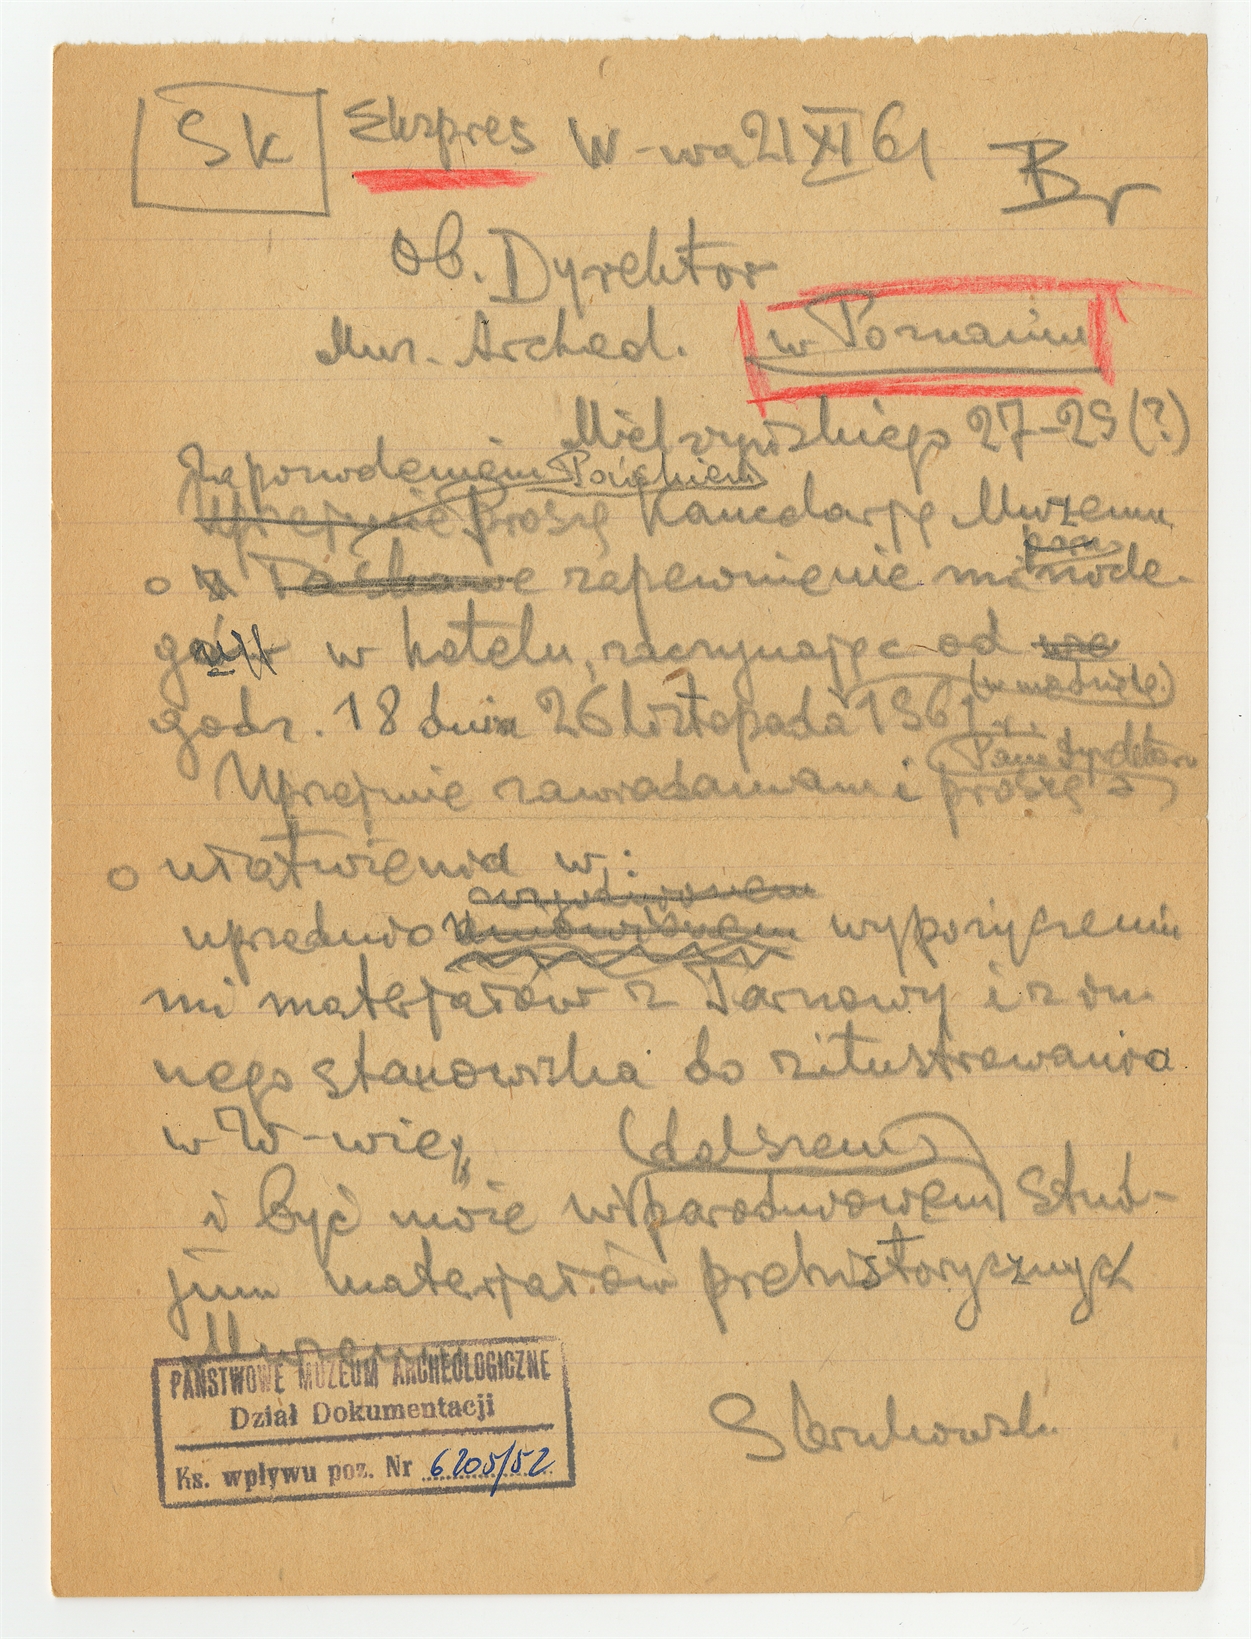 SK Ekspres W-wa 21 XI 61
Br
Ob. Dyrektor
Muz. Archeol. w Poznaniu
Mielżyńskiego 27-29 (?)
Za pozwoleniem Pańskiem
Uprzejmie proszę Kancelarję Muzeum
o Łaskawe zapewnienie mi nocle-
gu w hotelu, zaczynając od
godz. 18 dnia 26 listopada 1961 r. (w niedzielę)
Pana Dyrektora
Uprzejmie zawiadamiam i proszę
o ułatwienia w:
uprzednio wypożyczeniu
mi materjałów z Tarnowy i z in-
nego stanowiska do zilustrowania
w W-wie,
(dalszem)
i być może w parodniowem stud-
jum materjałów prehistorycznych
Muzeum
S Krukowski
PAŃSTWOWE MUZEUM ARCHEOLOGICZNE
Dział Dokumentacji
Ks. wpływu poz. Nr 6205/52